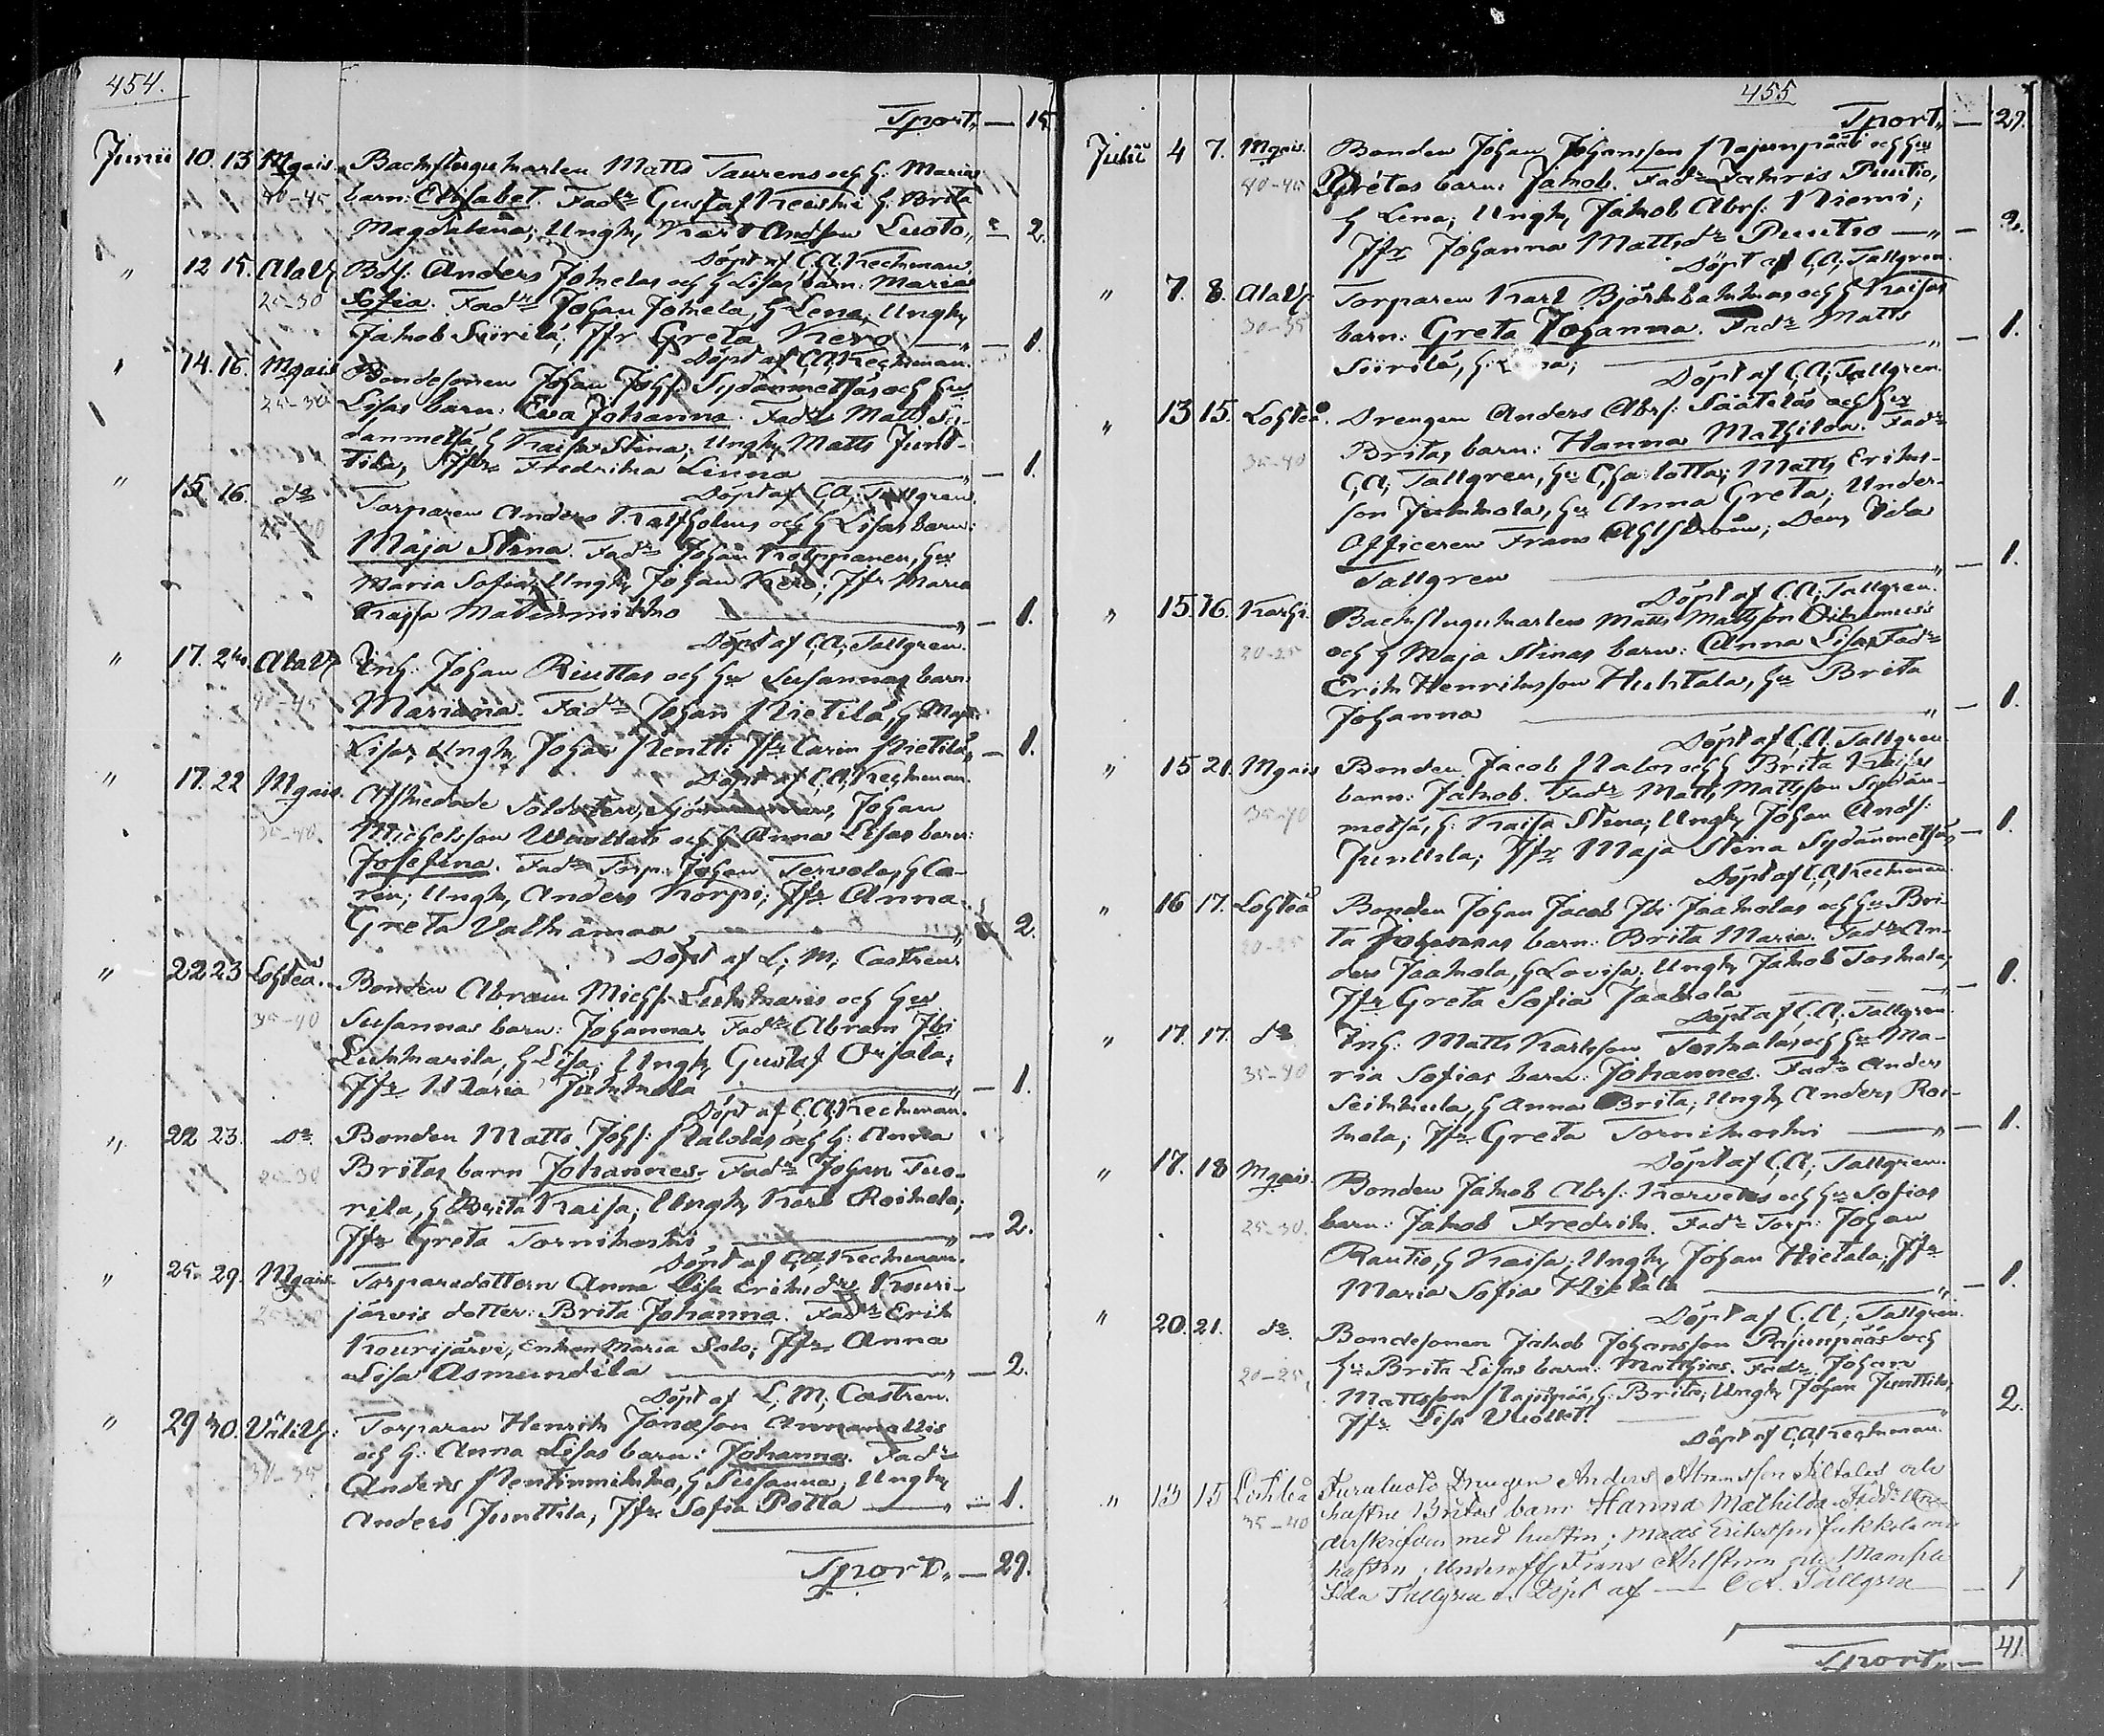 454.
Tport, — 15
Junii 10. 13 Mgais. Backstugukarlen Matts Taurens och h. Marias
40-45 barn: Elisabet. Fadr Gustaf h. Brita
Magdalena; Ungk, Karl Andsson Luoto, " 2
Döpt af C.A. Keckman.
" 12 15. Alavf Bds: Anders Jokelas och h Lisas barn: Maria
25-30 Sofia. Fadr Johan Jokela, h Lena; Ungk,
Jakob Siirilä; Jfr Greta Kero — " — 1.
Döpt af C.A. Keckman.
" 14. 16. Mgais Bondesonen Johan Johs: Sydänmetsäs och hu
25-30 Lisas barn: Eva Johanna. Fadr Matts Sy-
danmetsä, h Kaisa Stina; Ungk, Matts Junt-
tila, Jfr Fredrika Linna — " — 1.
Döpt af C.A. Tallgren.
" 15 16. do Torparen Anders Kalfholms och h Lisas barn:
Maja Stina. Fadr Johan hu
Maria Sofia; Ungk, Johan Kero; Jfr Maria
Kajsa — " — 1.
Döpt af C.A. Tallgren.
" 17. Alavf Inh: Johan Riuttas och hu Susannas barn:
40-45 Mariana. Fadr Johan Nietilä, h Maja
Lisa; Ungk, Johan Pentti Jfr Carin Nietilä, — 1.
Döpt af C.A. Keckman.
" 17. 22 Mgais. Afskedade Soldaten, Johan
35-40. Michelsson och h Anna Lisas barn:
Josefina. Fadr Torp: Johan Tervola, h Ca-
rin; Ungk, Anders Korpi; Jfr Anna
Greta — " 2.
Döpt af L. M. Castren.
" 22 23 Lohteå. Bonden Abram Michs: Lukkaris och hu
35-40 Susannas barn: Johanna. Fadr Abram Jbi
Lukkarila, h Lisa; Ungk, Gustaf Orjala;
Jfr Maria Jukkola — " — 1.
Döpt af C.A. Keckman.
" 22 23. Do. Bonden Matts Johs: och h: Anna
25-30 Britas barn Johannes. Fadr Johan Tuo-
rila, h Brita Kaisa; Ungk, Karl Roikola;
Jfr Greta Tornikoski — " — 2.
Döpt af C.A. Keckman.
" 25. 29. Mgais. Torparedottern Anna Lisa Eriksdr Kouri-
järvis dotter: Brita Johanna. Fadr Erik
Kourijärvi, Enkan Maria Salo; Jfr Anna
Lisa Asmundila — " — 2.
Döpt af L. M. Castren.
" 29 30. Välivf: Torparen Henrik
30-35 och h: Anna Lisas barn: Johanna. Fadr
Anders h Susanna; Ungk,
Anders Junttila, Jfr Sofia Potta — " — 1.
Tport, — 29.
455
Tport, — 29.
Julii 4 7. Mgais. Bonden Johan Johansson Rajunpääs och hu
40-45 Gretas barn: Jakob. Fadr Puutio,
h Lena; Ungk, Jakob Abrs: Niemi;
Jfr Johanna Mattsdr Puutio — " — 2.
Döpt af C.A. Tallgren.
" 7. 8. Alavf. Torparen Karl Björkbackas och h Kaisas
30-35 barn: Greta Johanna. Fadr Matts
Siirilä, h: Lena; — " — 1.
Döpt af C.A. Tallgren.
" 13 15. Lohteå. Drengen Anders Abrs: och hu
35-40 Britas barn: Hanna Mathilda. Fadr
C.A. Tallgren, hu Charlotta; Matts Eriks-
son Jukkola, hu Anna Greta; Under-
Officeren Frans Ahlström; Dem: Ida
Tallgren — " — 1.
Döpt af C.A. Tallgren.
" 15 16. Karhi. Backstugukarlen Matts Mattsson
20-25 och h Maja Stinas barn: Anna Lisa. Fadr
Erik Henriksson Huhtala, hu Brita
Johanna — " — 1.
Döpt af C.A. Tallgren.
" 15 21. Mgais Bonden Jacob och h Brita Kaisas
35-40 barn: Jakob. Fadr Matts Mattsson Sydän-
metsä, h: Kaisa Stina; Ungk, Johan Ands:
Junttila; Jfr Maja Stina Sydänmetsä, — 1.
Döpt af C.A. Keckman.
" 16 17. Lohteå Bonden Johan Jacob Jbi Jaakolas och hu Bri-
20-25 ta Johannas barn: Brita Maria. Fadr An-
ders Jaakola, h Lovisa; Ungk, Jakob Toskala;
Jfr Greta Sofia Jaakola — " — 1.
Döpt af C.A. Tallgren.
" 17. 17. do Inh: Matts Karlsson Toskalas och hu Ma-
35-40 ria Sofias barn: Johannes. Fadr Anders
Seikkula, h Anna Brita; Ungk, Anders Roi-
kola; Jfr Greta Tornikoski — " — 1.
Döpt af C.A. Tallgren.
" 17. 18 Mgais. Bonden Jakob Abrs: Karvelas och hu Sofias
25-30. barn: Jakob Fredrik. Fadr Torp: Johan
Rautio, h Kaisa; Ungk, Johan Hietala; Jfr
Maria Sofia Hietala — " — 1.
Döpt af C.A. Tallgren.
" 20. 21. do. Bondesonen Jakob Johansson Rajunpääs och
20-25 hu Brita Lisas barn: Mathias. Fadr Johan
Mattsson Rajunpää, h: Brita; Ungk, Johan Junttila;
Jfr Lisa Vuollet — " 2.
Döpt af C.A. Keckman.
" 13 15 Lohteå Drengen Anders Abramsson och
35-40 hustru Britas barn Hanna Mathilda. Fadr: Un-
derskrifven med hustru; Mats Eriksson Jukkola m
hustru, Underoff. Frans Ahlström och Mamsell
Ida Tallgren. Döpt af — C A. Tallgren — 1
Tport, — 41.